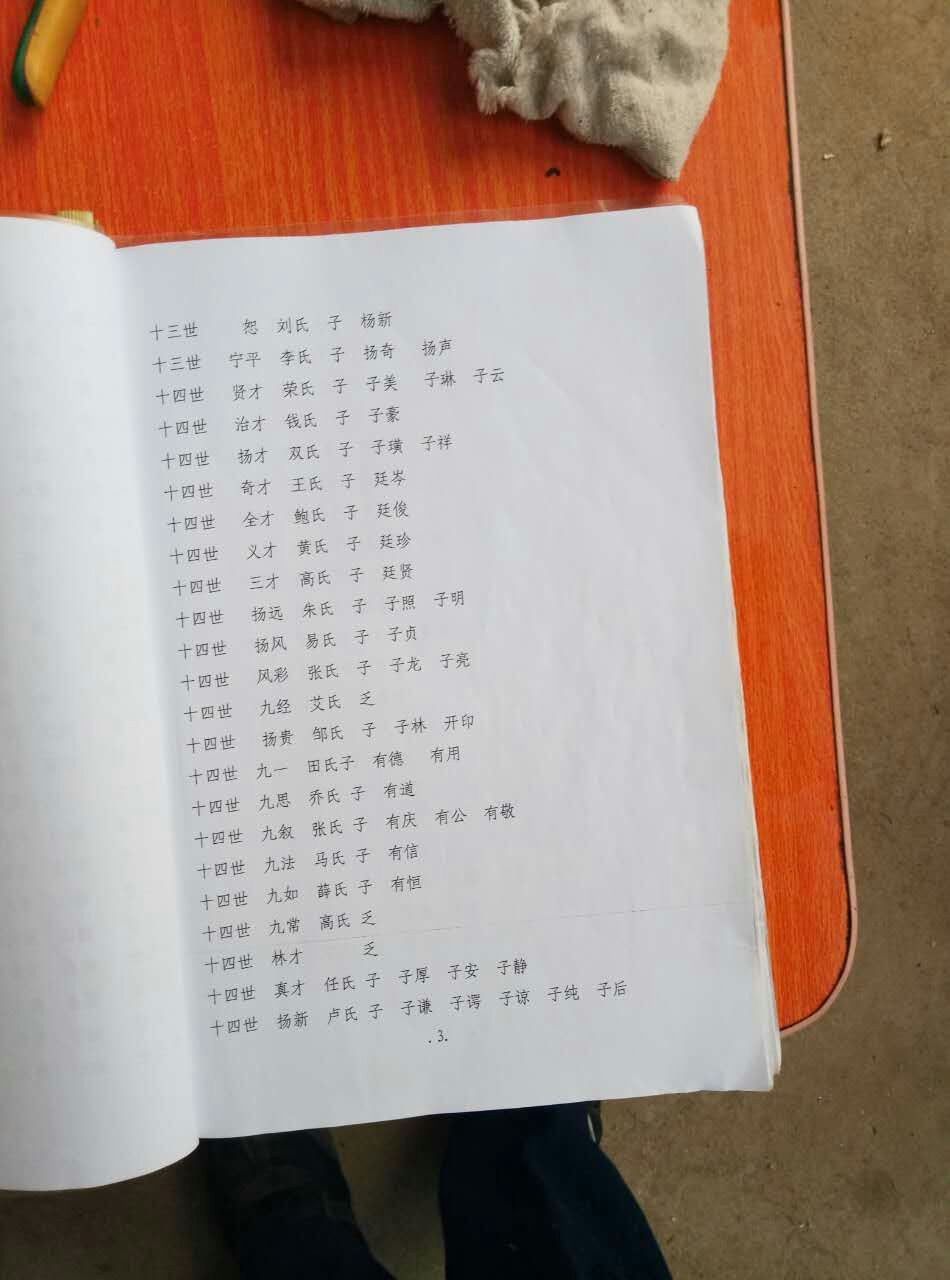 十三世 恕 刘氏 子 杨新
十三世 宁平 李氏 子 扬奇 扬声
十四世 贤才 荣氏 子 子美 子琳 子云
十四世 治才 钱氏 子 子豪
十四世 扬才 双氏 子 子璜 子祥
十四世 奇才 王氏 子 廷岑
十四世 全才 鲍氏 子 廷俊
十四世 义才 黄氏 子 廷珍
十四世 三才 高氏 子 廷贤
十四世 扬远 朱氏 子 子照 子明
十四世 扬风 易氏 子 子贞
十四世 风彩 张氏 子 子龙 子亮
十四世 九经 艾氏 乏
十四世 扬贵 邹氏 子 子林 开印
十四世 九一 田氏子 有德 有用
十四世 九思 乔氏 子 有道
十四世 九叙 张氏 子 有庆 有公 有敬
十四世 九法 马氏 子 有信
十四世 九如 薛氏 子 有恒
十四世 九常 高氏 乏
十四世 林才 乏
十四世 真才 任氏 子 子厚 子安 子静
十四世 扬新 卢氏 子 子谦 子谔 子谅 子纯 子后
.3.